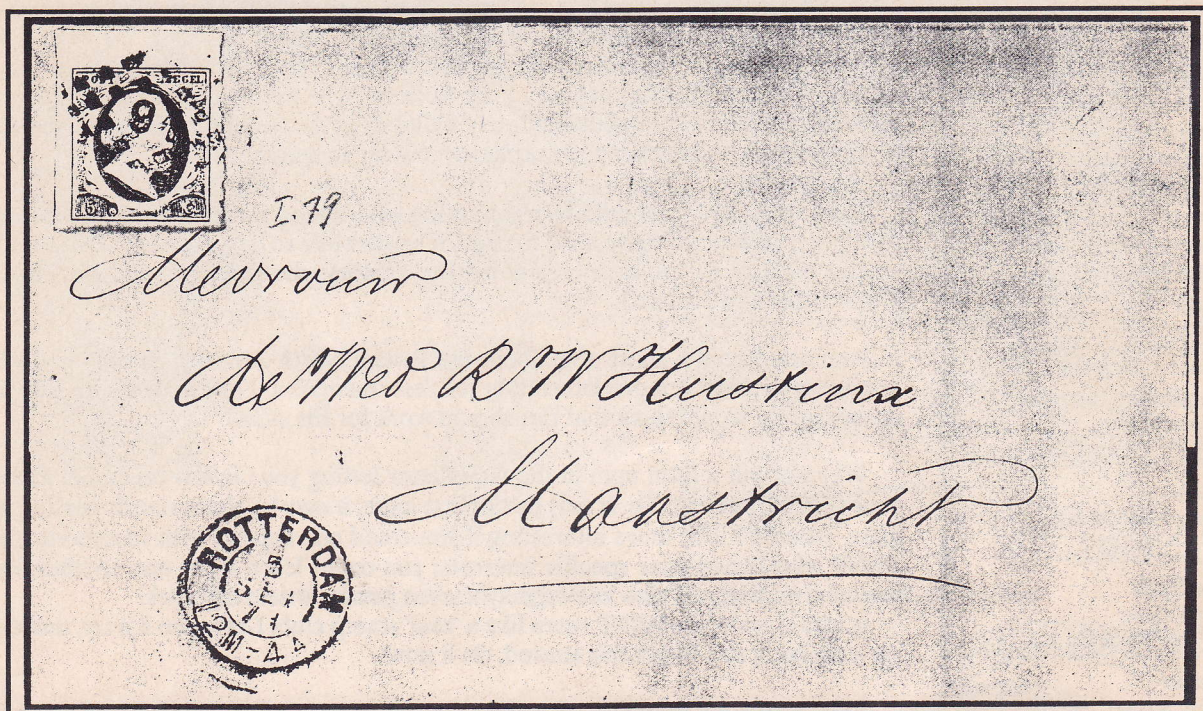 POSTZEGEL
9
5 C
I.79
Mevrouw
de Wed R W Hustinx
Maastricht
ROTTERDAM
8
SEP
71
12M-4A